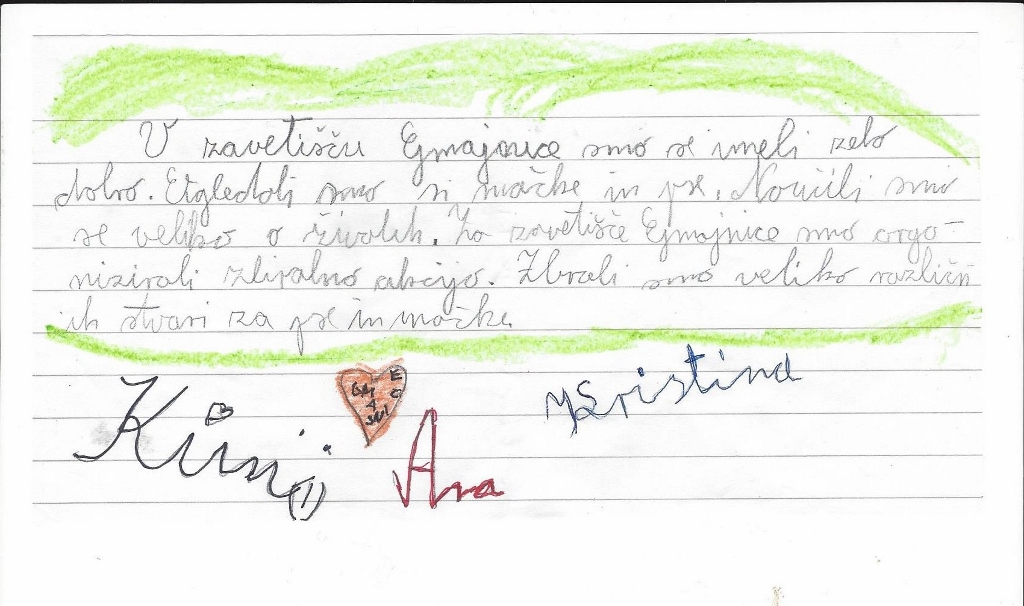 V zavetišču Gmajnice smo se imeli zelo
dobro. Ogledali smo si mačke in pse. Naučili smo
se veliko o živalih. Za zavetišče Gmajnice smo orga-
nizirali zbiralno akcijo. Zbrali smo veliko različn
ih stvari za pse in mačke.
Kristina
Ana